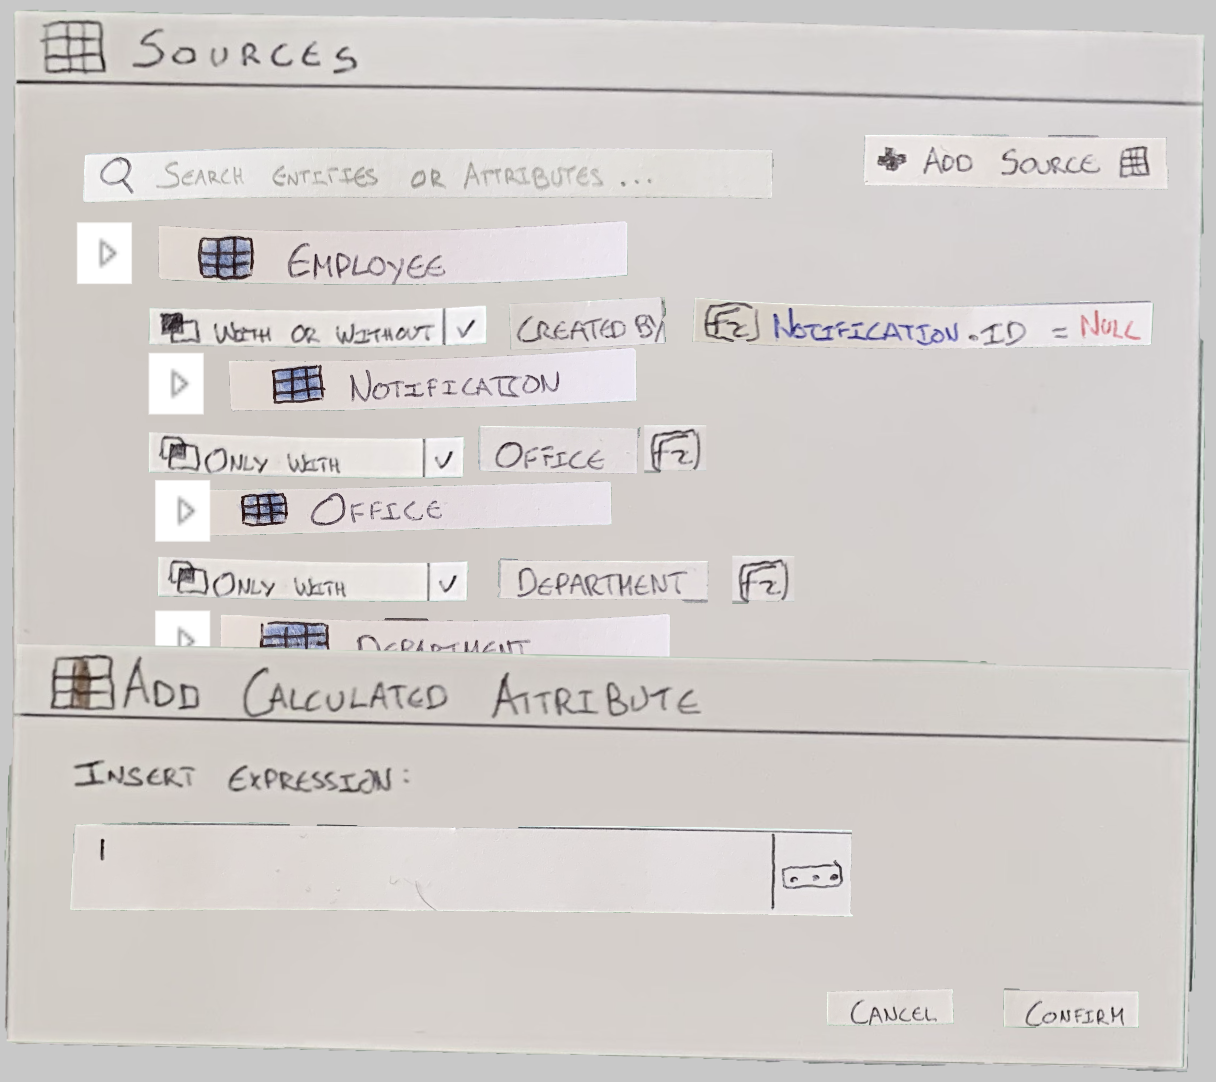 SOURCES
SEARCH ENTITIES OR ATTRIBUTES ...
ADD SOURCE
EMPLOYEE
WITH OR WITHOUT CREATED BY fz NOTIFICATION.ID = NULL
NOTIFICATION
ONLY WITH OFFICE fz
OFFICE
ONLY WITH DEPARTMENT fz
DEPARTMENT
ADD CALCULATED ATTRIBUTE
INSERT EXPRESSION:
CANCEL CONFIRM